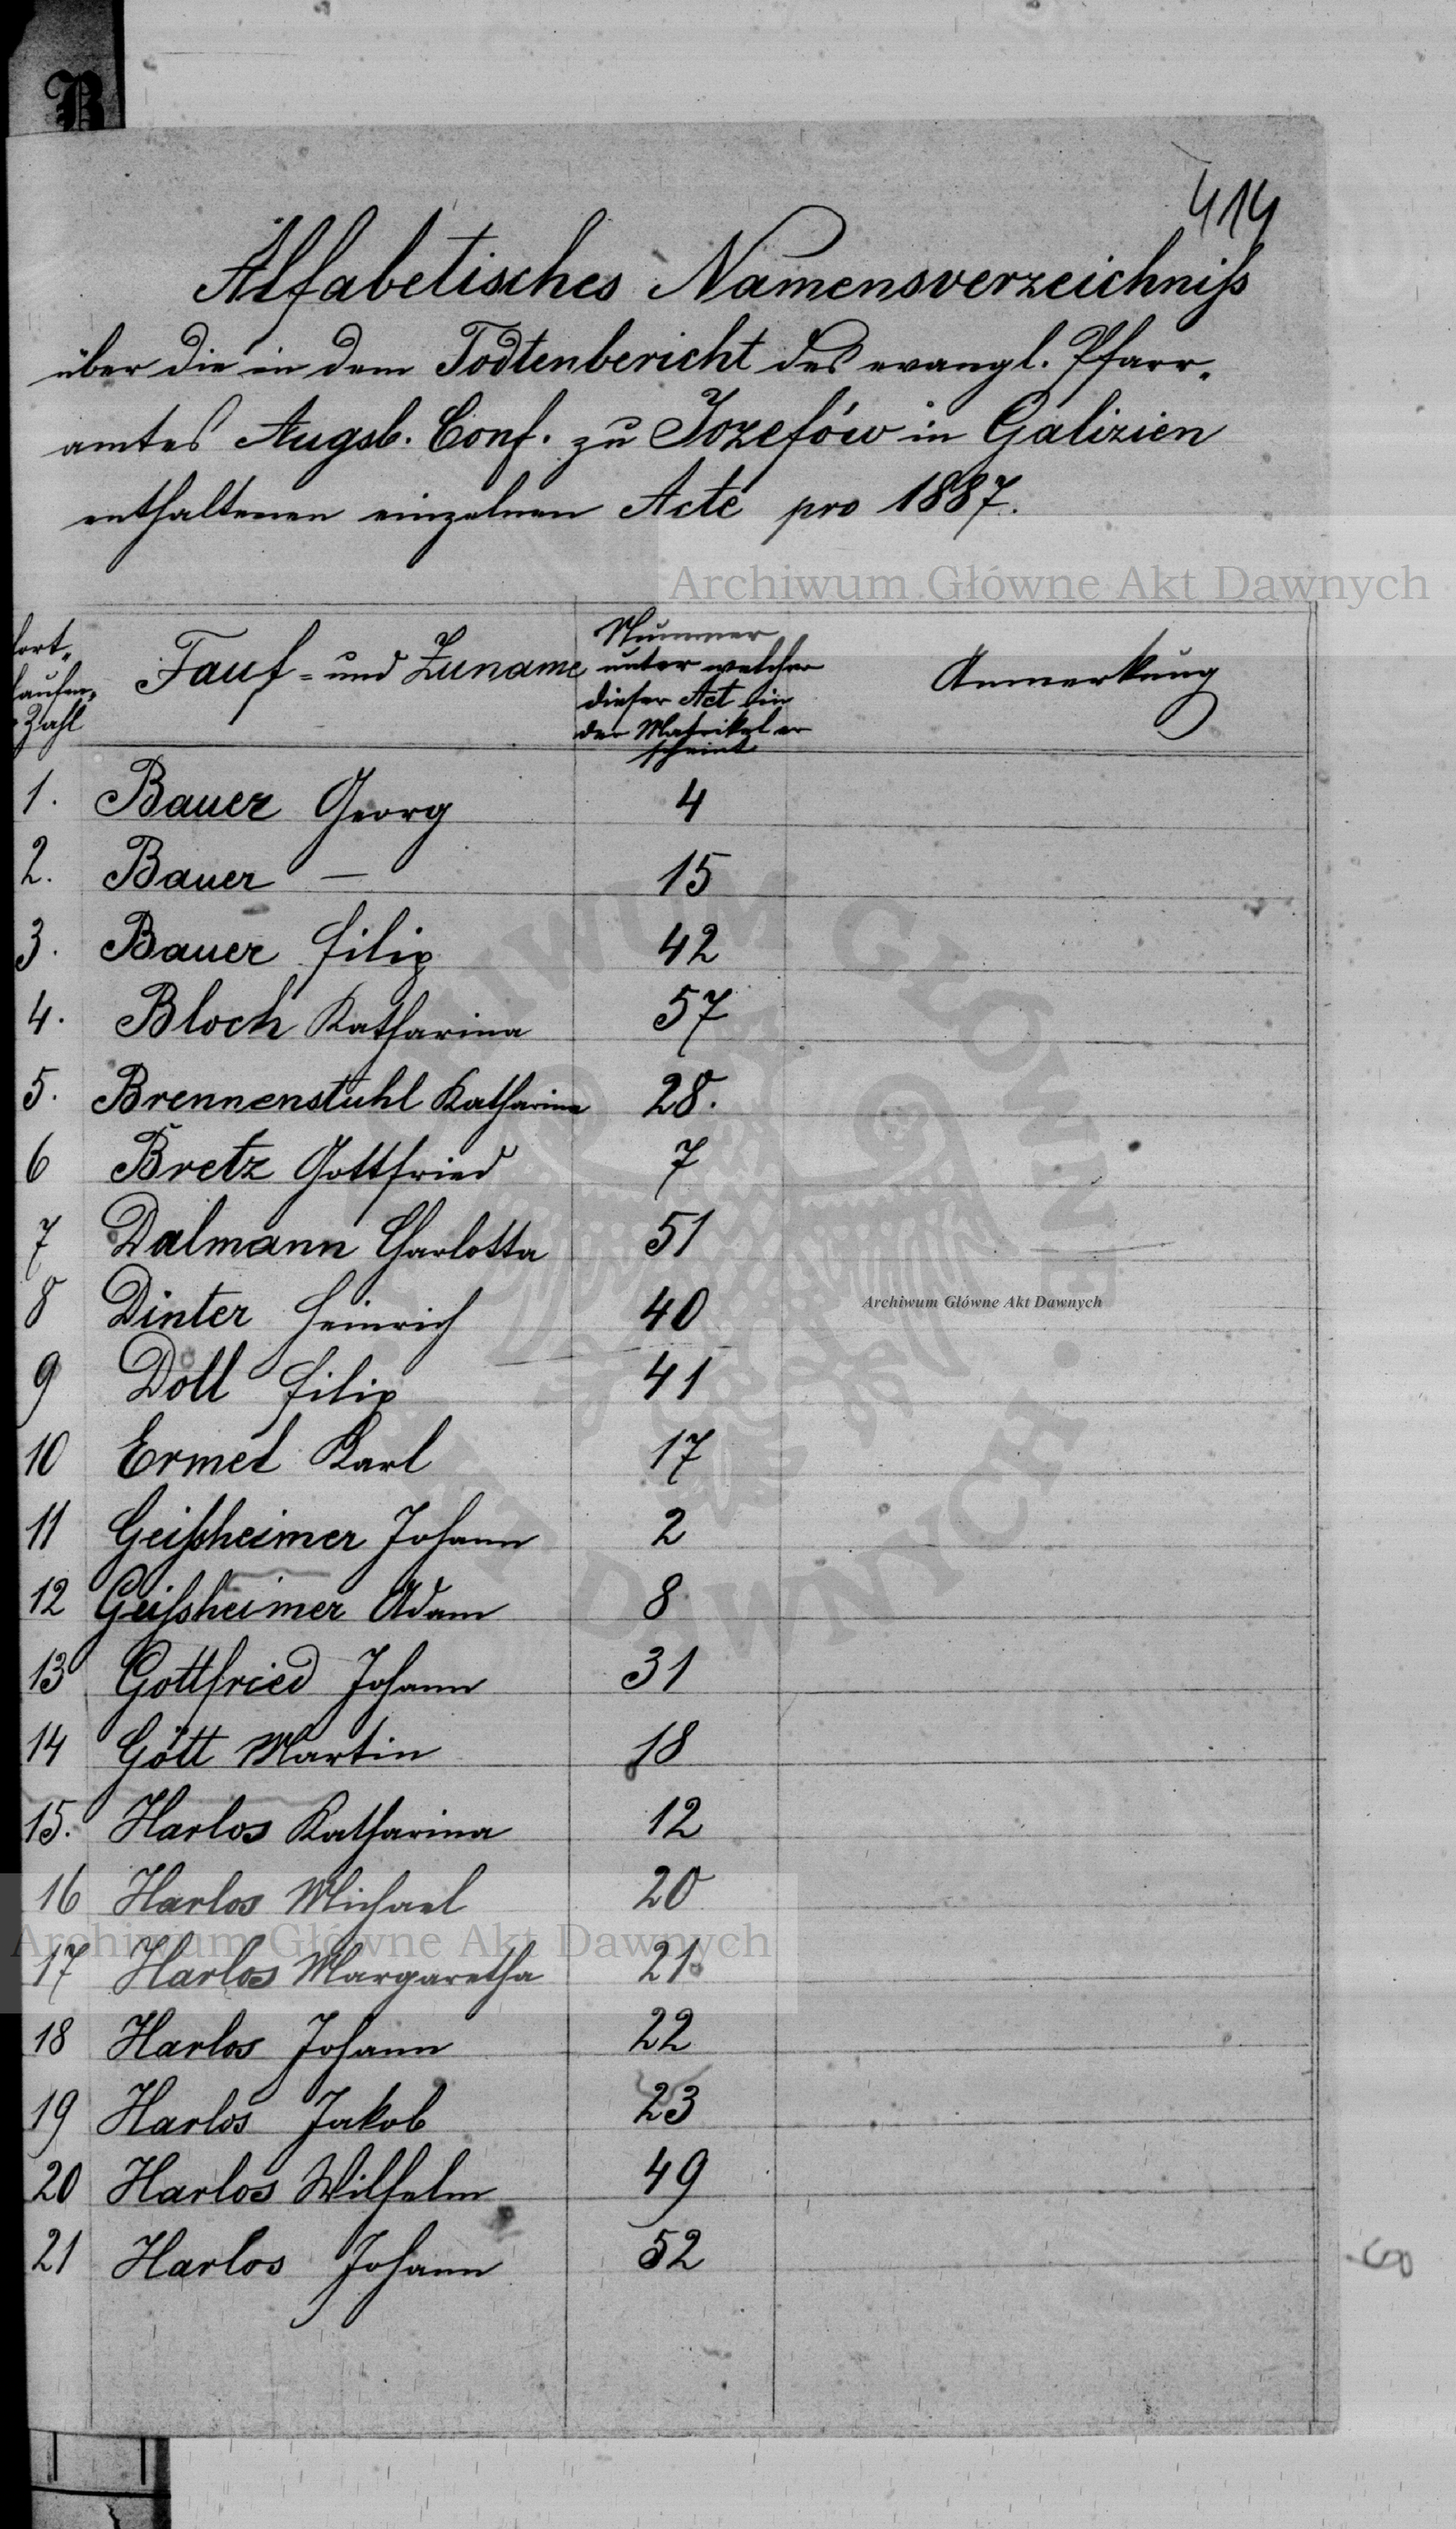 B
414
Alfabetisches Namensverzeichniß
über die in dem Todtenbericht des evangl. Pfarr-
amtes Augsb. Conf. zu Jozefów in Galizien
enthaltenen einzelnen Acte pro 1887.
Archiwum Główne Akt Dawnych
fort-laufen- Zahl Tauf- und Zuname Nummer unter welcher dieser Act in der Matrikel erscheint Anmerkung
1. Bauer Georg 4
2. Bauer — 15
3. Bauer Filip 42
4. Bloch Katharina 57
5. Brennenstuhl Katharina 28.
6 Bretz Gottfried 7
7 Dalmann Charlotta 51
8 Dinter Heinrich 40
Archiwum Główne Akt Dawnych
9 Doll Filip 41
10 Ermel Karl 17
11 Geißheimer Johann 2
12 Geißheimer Adam 8
13 Gottfried Johann 31
14 Gött Martin 18
15. Harlos Katharina 12
16 Harlos Michael 20
Archiwum Główne Akt Dawnych
17 Harlos Margaretha 21
18 Harlos Johann 22
19 Harlos Jakob 23
20 Harlos Wilhelm 49
21 Harlos Johann 52
ARCHIWUM GŁÓWNE AKT DAWNYCH